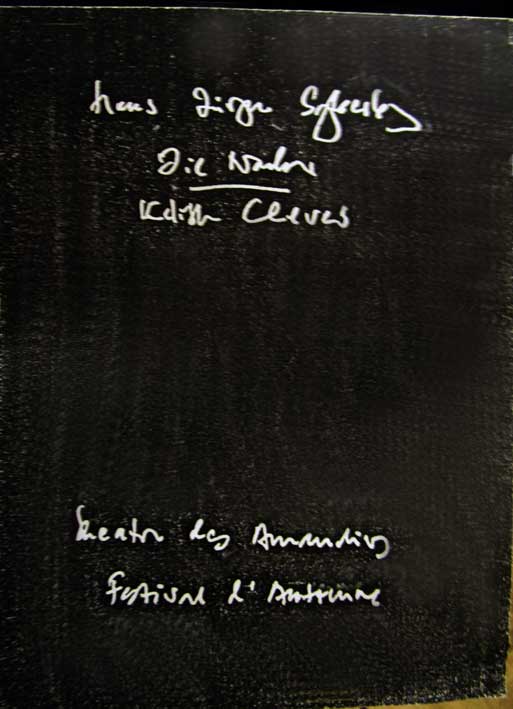 Hans Jürgen Syberberg
Die Nacht
Edith Clever
Theatre des Amandiers
Festival d'Automne